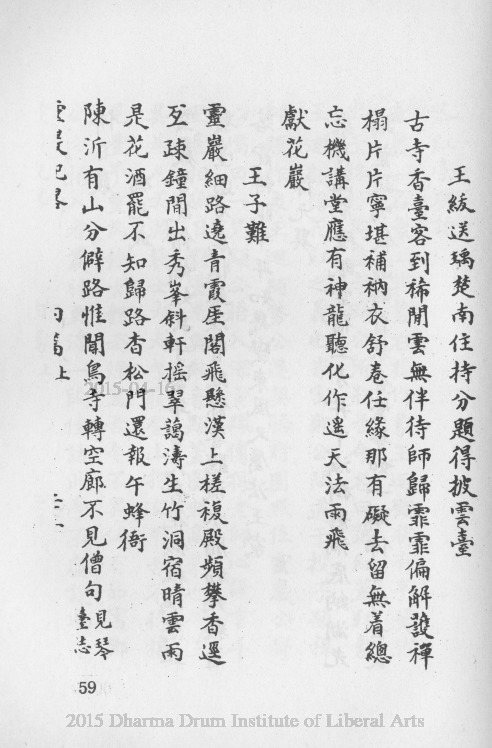 王紱送瑀楚南住持分題得披雲臺
古寺香臺客到稀閒雲無伴待師歸霏霏偏解護禪
榻片片寧堪補衲衣舒卷任緣那有礙去留無着總
忘機講堂應有神龍聽化作遙天法雨飛
獻花巖
王子難
靈巖細路遶青霞厓閣飛懸漢上槎複殿頻攀香逕
疎鐘閒出秀峯斜軒摇翠藹濤生竹洞宿晴雲雨
是花酒罷不知歸路杳松門還報午蜂衙
陳沂有山分僻路惟聞鳥寺轉空廊不見僧句見琴
臺志
上
59
2015-04-16
2015 Dharma Drum Institute of Liberal Arts